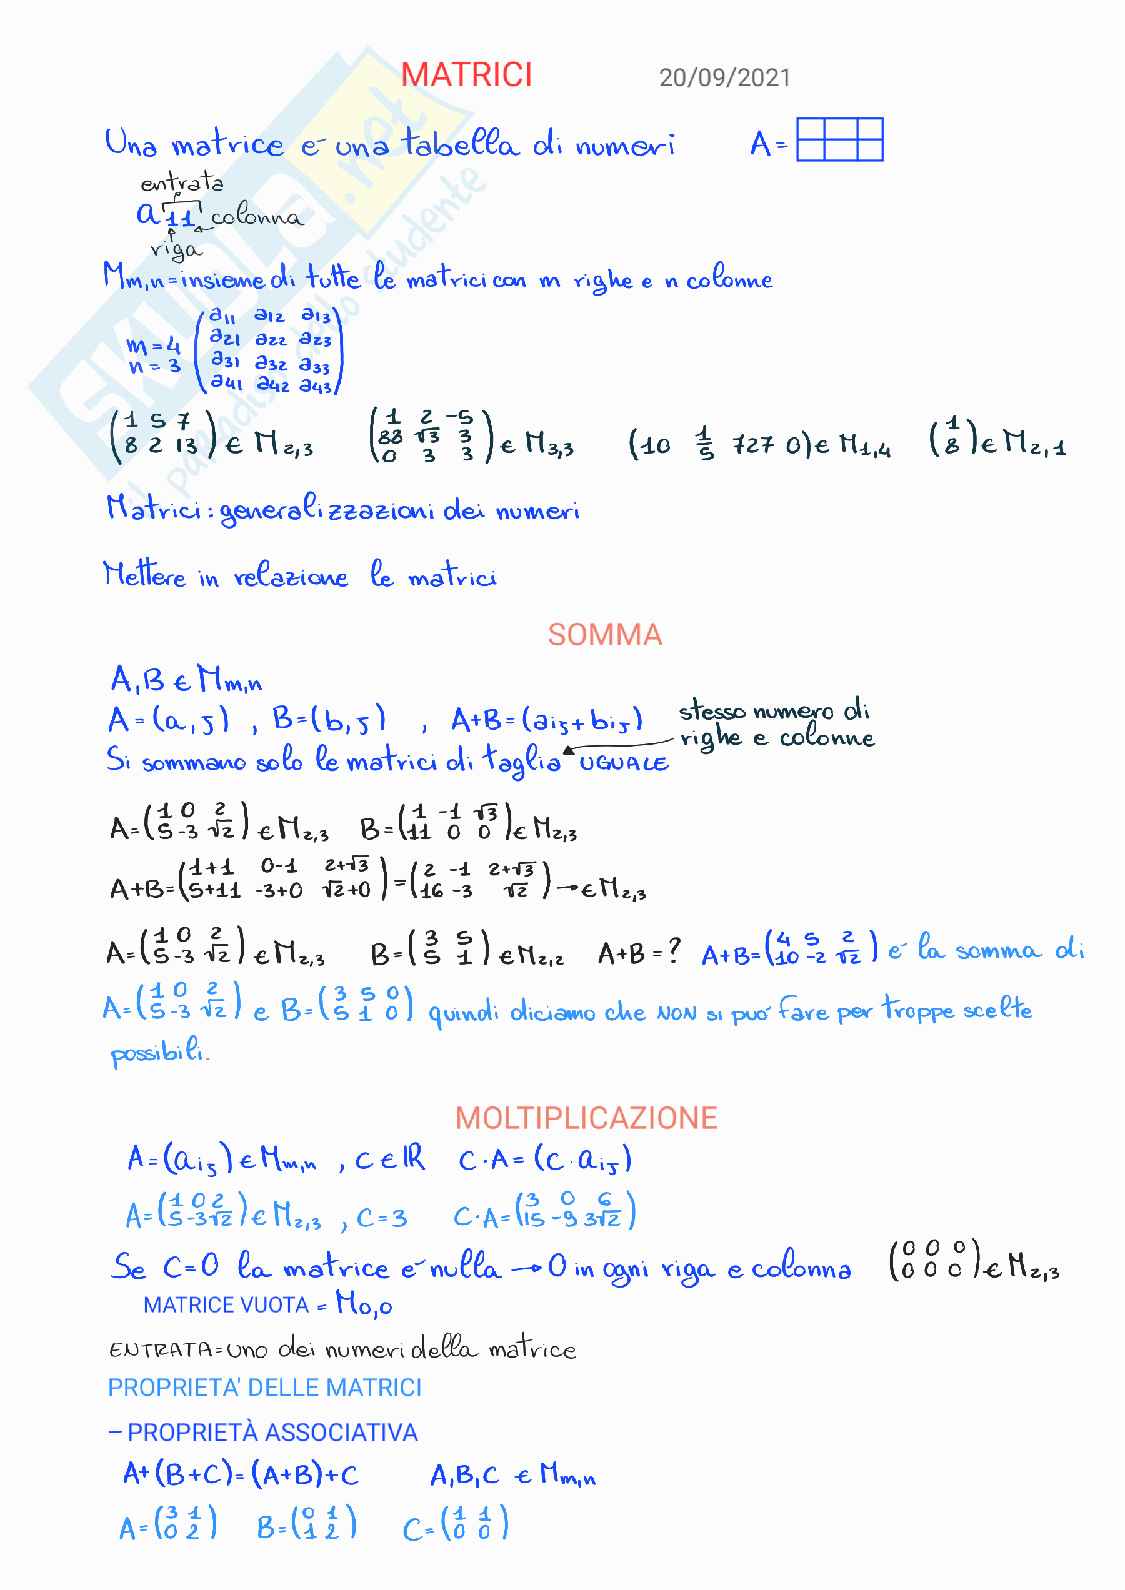 MATRICI 20/09/2021
Una matrice e' una tabella di numeri A=
entrata
a11 colonna
riga
Mm,n=insieme di tutte le matrici con m righe e n colonne
m=4 n=3 (a11 a12 a13
a21 a22 a23
a31 a32 a33
a41 a42 a43)
(1 5 7 / 8 2 13) ∈ M2,3 (1 2 -5 / 88 √3 3 / 0 3 3) ∈ M3,3 (10 1/5 727 0) ∈ M1,4 (1 / 8) ∈ M2,1
Matrici: generalizzazioni dei numeri
Mettere in relazione le matrici
SOMMA
A,B ∈ Mm,n
A=(a,j) , B=(b,j) , A+B=(aij+bij) stesso numero di
righe e colonne
Si sommano solo le matrici di taglia UGUALE
A=(1 0 2 / 5 -3 √2) ∈ M2,3 B=(1 -1 √3 / 11 0 0) ∈ M2,3
A+B=(1+1 0-1 2+√3 / 5+11 -3+0 √2+0)=(2 -1 2+√3 / 16 -3 √2) → ∈ M2,3
A=(1 0 2 / 5 -3 √2) ∈ M2,3 B=(3 5 / 5 1) ∈ M2,2 A+B=? A+B=(4 5 2 / 10 -2 √2) e' la somma di
A=(1 0 2 / 5 -3 √2) e B=(3 5 0 / 5 1 0) quindi diciamo che NON si puo' fare per troppe scelte
possibili.
MOLTIPLICAZIONE
A=(aij) ∈ Mm,n , C ∈ ℝ C·A=(C·aij)
A=(1 0 2 / 5 -3 √2) ∈ M2,3 , C=3 C·A=(3 0 6 / 15 -9 3√2)
Se C=0 la matrice e' nulla → 0 in ogni riga e colonna (0 0 0 / 0 0 0) ∈ M2,3
MATRICE VUOTA = M0,0
ENTRATA=uno dei numeri della matrice
PROPRIETA' DELLE MATRICI
– PROPRIETÀ ASSOCIATIVA
A+(B+C)=(A+B)+C A,B,C ∈ Mm,n
A=(3 1 / 0 2) B=(0 1 / 1 2) C=(1 1 / 0 0)
SKUOLA.net
il paradiso dello studente